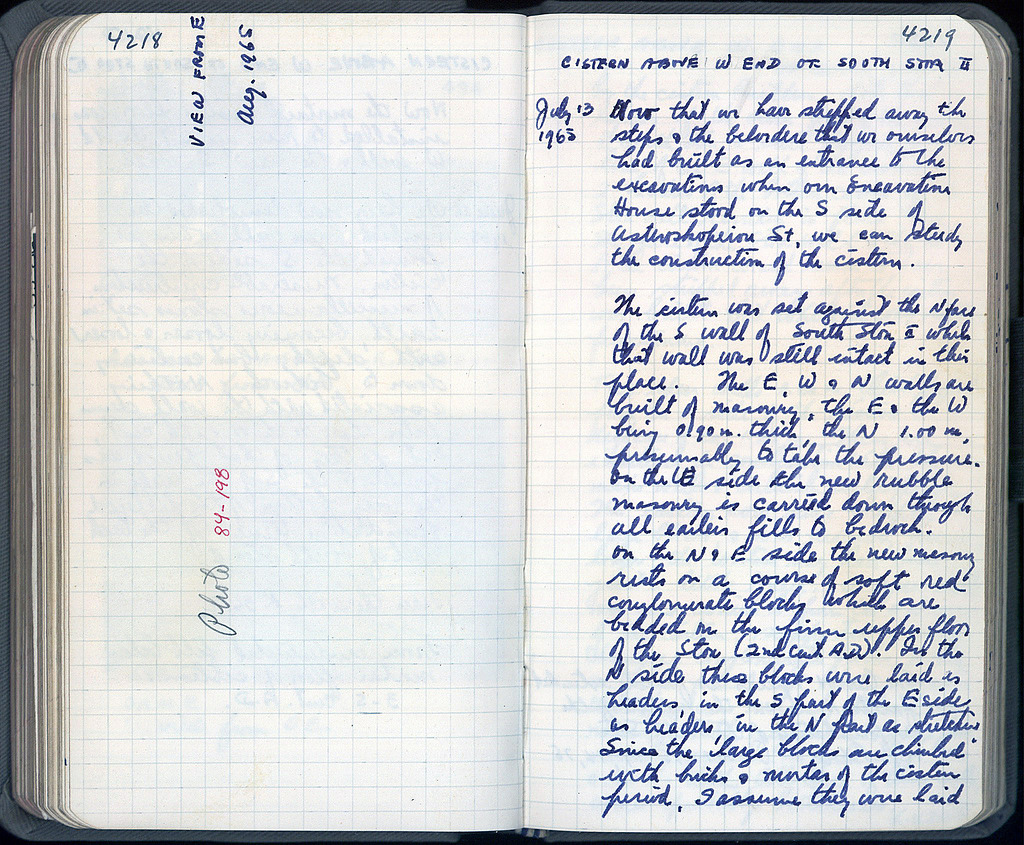 4218
VIEW FROM E
Aug. 1965
84-198
Photo
4219
CISTERN ABOVE W END OF SOUTH STOA II
July 13
1965
Now that we have stripped away the
steps & the belvedere that we ourselves
had built as an entrance to the
excavations when our Excavation
House stood on the S side of
Asteroskopeiou St, we can study
the construction of the cistern.
The cistern was set against the N face
of the S wall of South Stoa II while
that wall was still intact in this
place. The E W & N walls are
built of masonry, the E & the W
being 0.90 m. thick, the N 1.00 m,
presumably to take the pressure.
On the W side the new rubble
masonry is carried down through
all earlier fills to bedrock.
On the N & E side the new masonry
rests on a course of soft red
conglomerate blocks which are
bedded on the firm upper floor
of the Stoa (2nd cent. A.D.). In the
N side these blocks were laid as
headers, in the S part of the E side
as headers, in the N part as stretchers
Since the large blocks are chinked
with bricks & mortar of the cistern
period, I assume they were laid